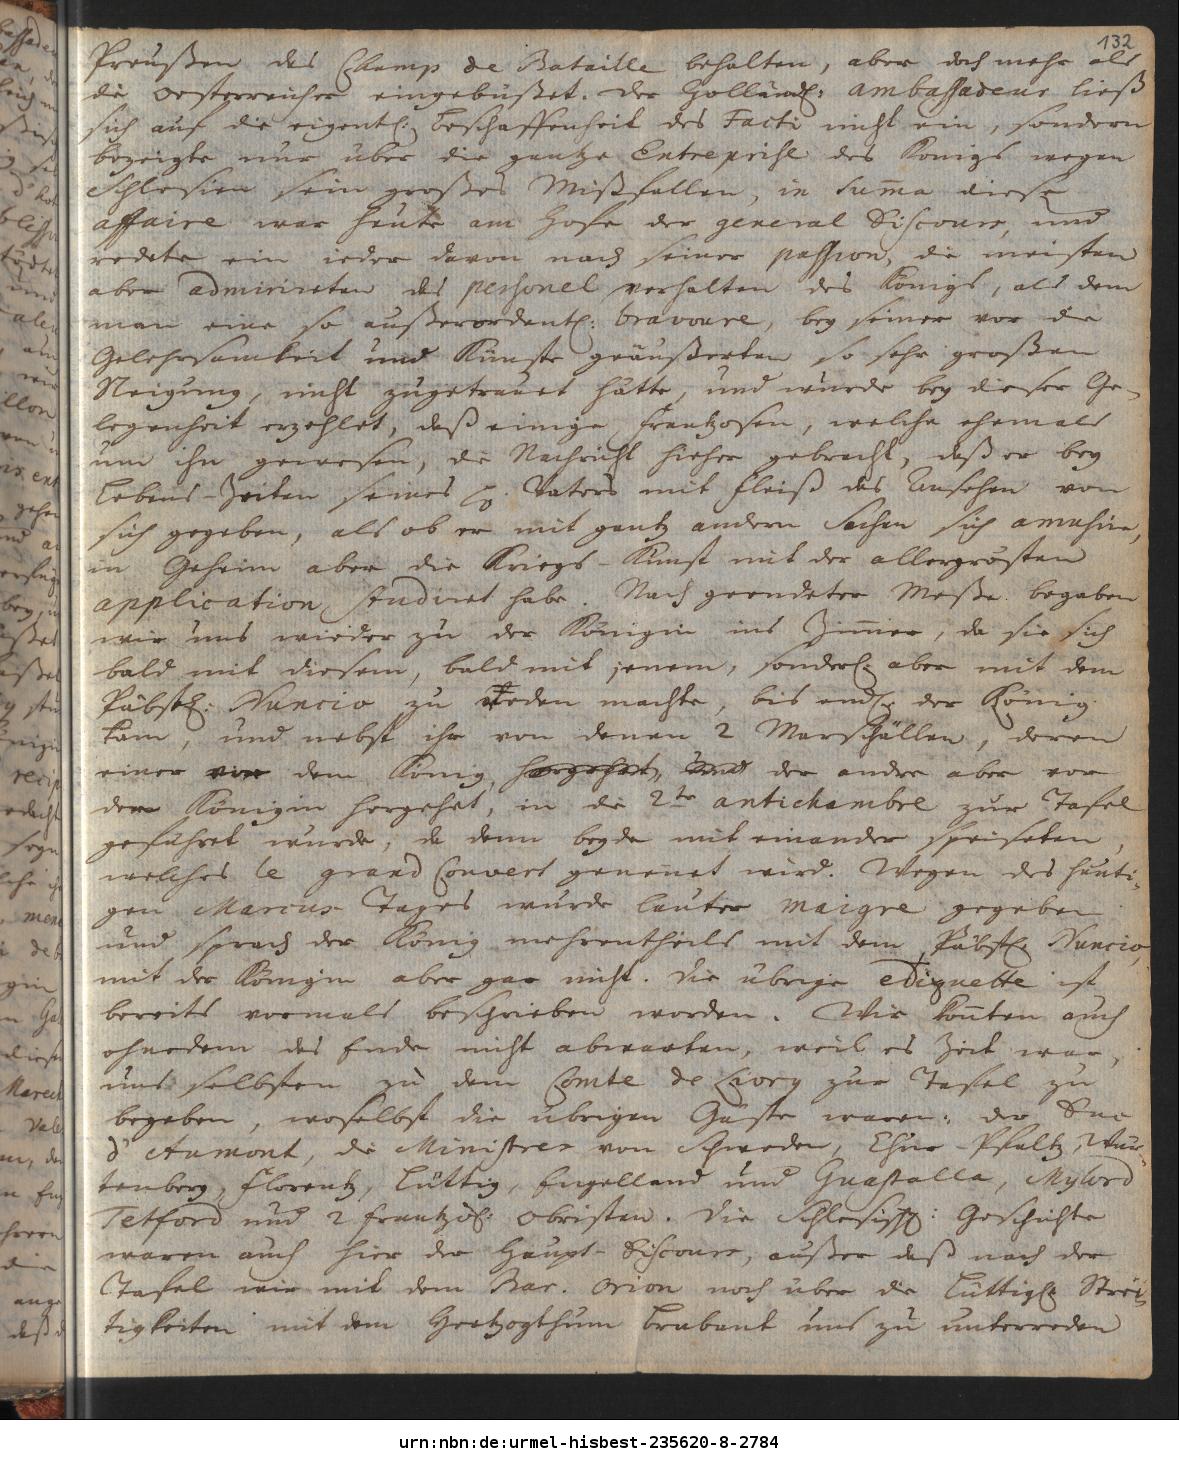 132
Preußen das Champ de Bataille behalten, aber doch mehr als
die Oesterreicher eingebüßet. Der Holländ: Ambassadeur ließ
sich auf die eigentl: Beschaffenheit des Facti nicht ein, sondern
bezeigte nur über die gantze Entreprise des Königs wegen
Schlesien sein großes Mißfallen, in Summa diese
affaire war heute am Hofe der general Discours, und
redete ein ieder davon nach seiner passion, die meisten
aber admirirten das personel verhalten des Königs, als dem
man eine so außerordentl: bravoure, bey seiner vor die
Gelehrsamkeit und Künste geäußerten so sehr großen
Neigung, nicht zugetrauet hätte, und wurde bey dieser Ge-
legenheit erzehlet, daß einige Frantzosen, welche ehemals
um ihn gewesen, die Nachricht hieher gebracht, daß er bey
Lebens-Zeiten seines H. Vaters mit Fleiß das Ansehen von
sich gegeben, als ob er mit gantz andern Sachen sich amusire,
in Geheim aber die Kriegs-Kunst mit der allergrösten
application studiret habe. Nach geendeter Meße begaben
wir uns wieder zu der Königin ins Zimmer, da sie sich
bald mit diesem, bald mit jenem, sonderl. aber mit dem
Päbstl: Nuncio zu reden machte, bis endl. der König
kam, und nebst ihr von denen 2 Marschällen, deren
einer vor dem König hergehet, und der andre aber vor
der Königin hergehet, in die 2te antichambre zur Tafel
geführet wurde, da denn beyde mit einander speiseten,
welches le grand Couvert genennet wird. Wegen des heuti-
gen Marcus-Tages wurde lauter maigre gegeben
und sprach der König mehrentheils mit dem Päbstl. Nuncio,
mit der Königin aber gar nicht. Die übrige etiquette ist
bereits vormals beschrieben worden. Wir konnten auch
ohnedem das Ende nicht abwarten, weil es Zeit war,
uns selbsten zu dem Comte de Civry zur Tafel zu
begeben, woselbst die übrigen Gäste waren: der Duc
d'Aumont, die Ministres von Schweden, Chur-Pfaltz, Wür-
tenberg, Florentz, Lüttig, Engelland und Guastalla, Mylord
Tetford und 2 frantzös: Obristen. Die Schlesisch: Geschichte
waren auch hier der Haupt-Discours, außer daß nach der
Tafel wir mit dem Bar. Orion noch über die Lüttigl. Strei-
tigkeiten mit dem Hertzogthum Brabant uns zu unterreden
urn:nbn:de:urmel-hisbest-235620-8-2784